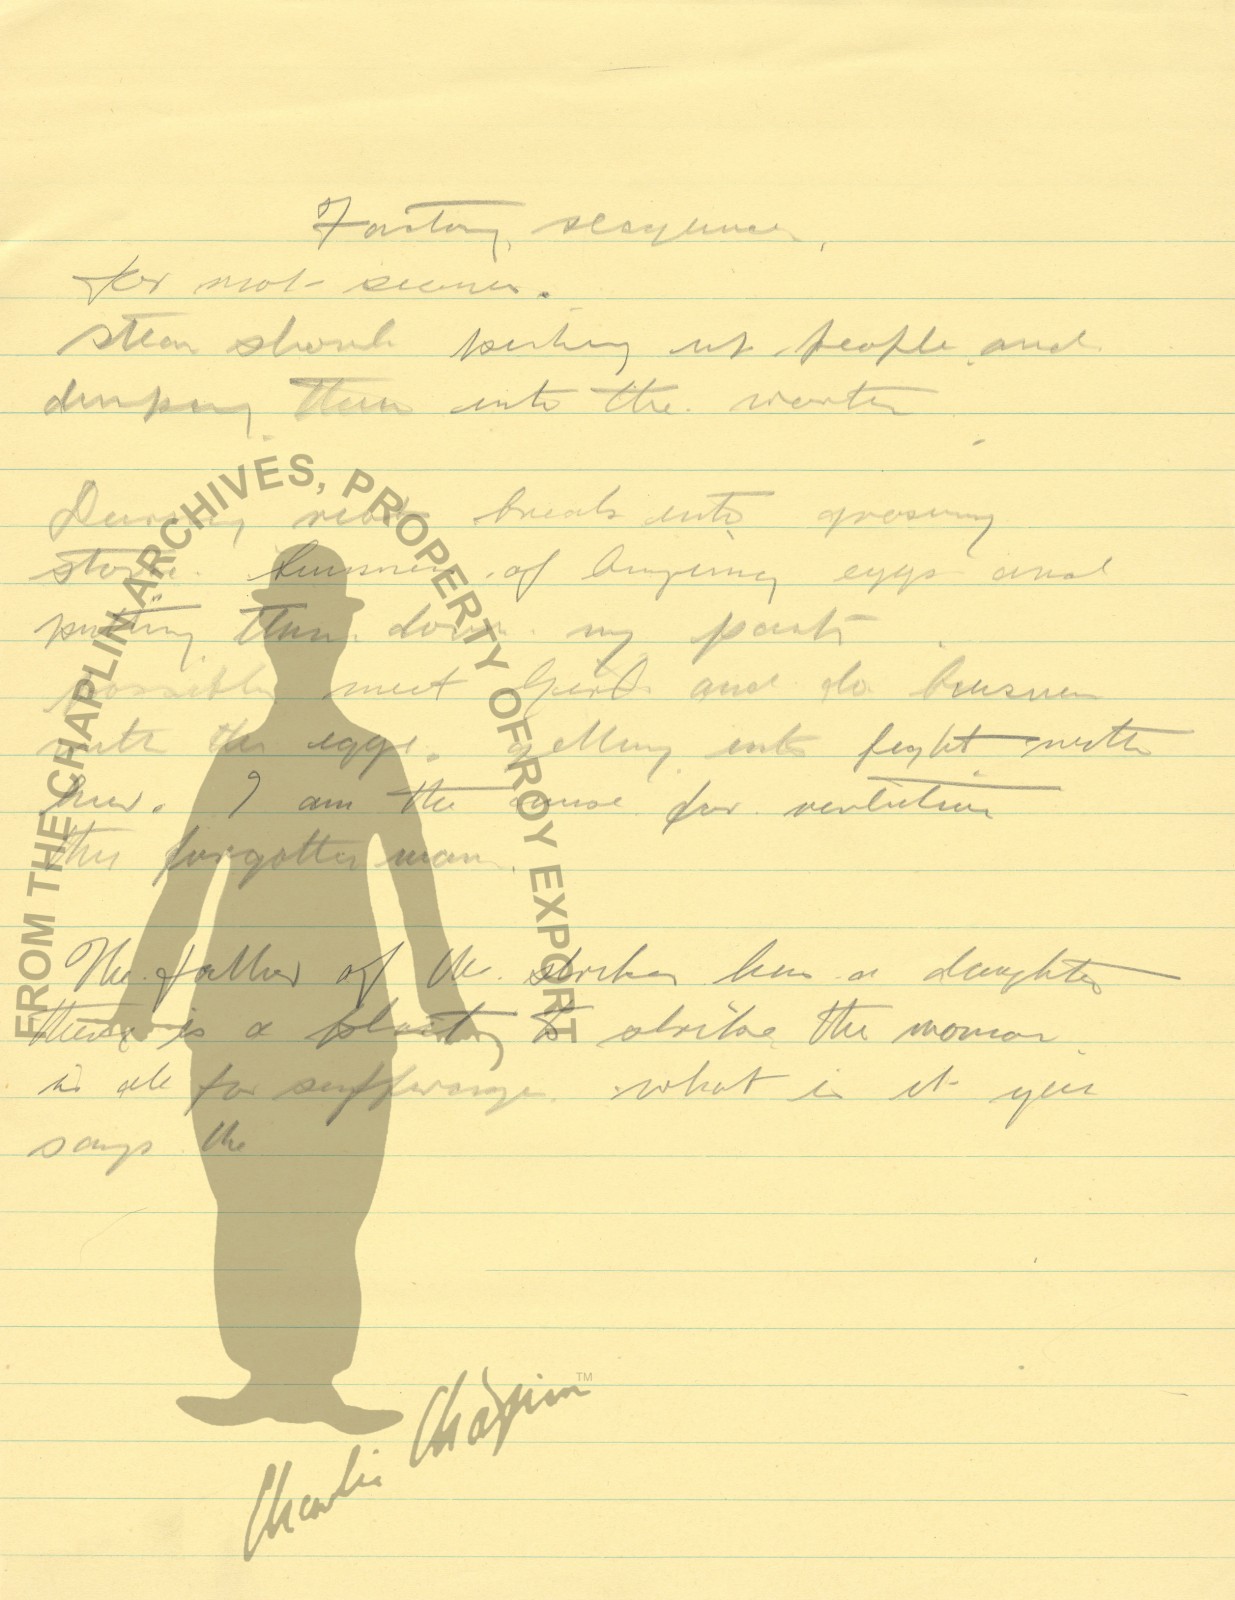 Factory sequence.
for riot scenes.
steam shovel picking up people and
dumping them into the water
During riot breaks into grocery
store. business of buying eggs and
putting them down my pants
possibly meet Girl and do business
with the eggs. getting into fight with
her. I am the cause for revolution
the forgotten man.
The father of the striker has a daughter
there is a plant to strike the woman
is all for suffrage. what is it you
says the
FROM THE CHAPLIN ARCHIVES, PROPERTY OF ROY EXPORT
Charlie Chaplin™